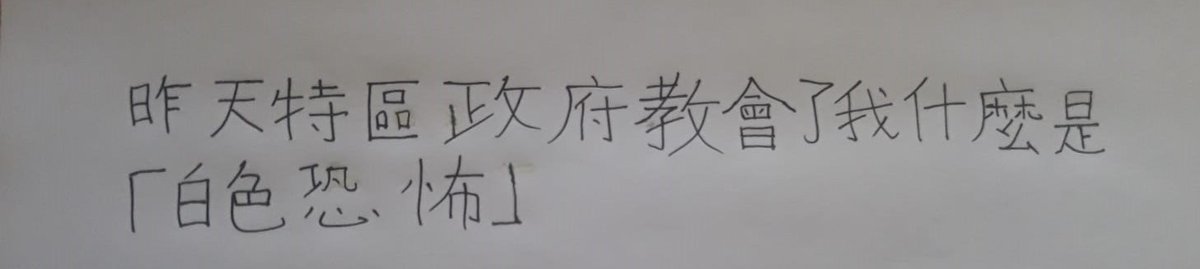 昨天特區政府教會了我什麼是
「白色恐怖」